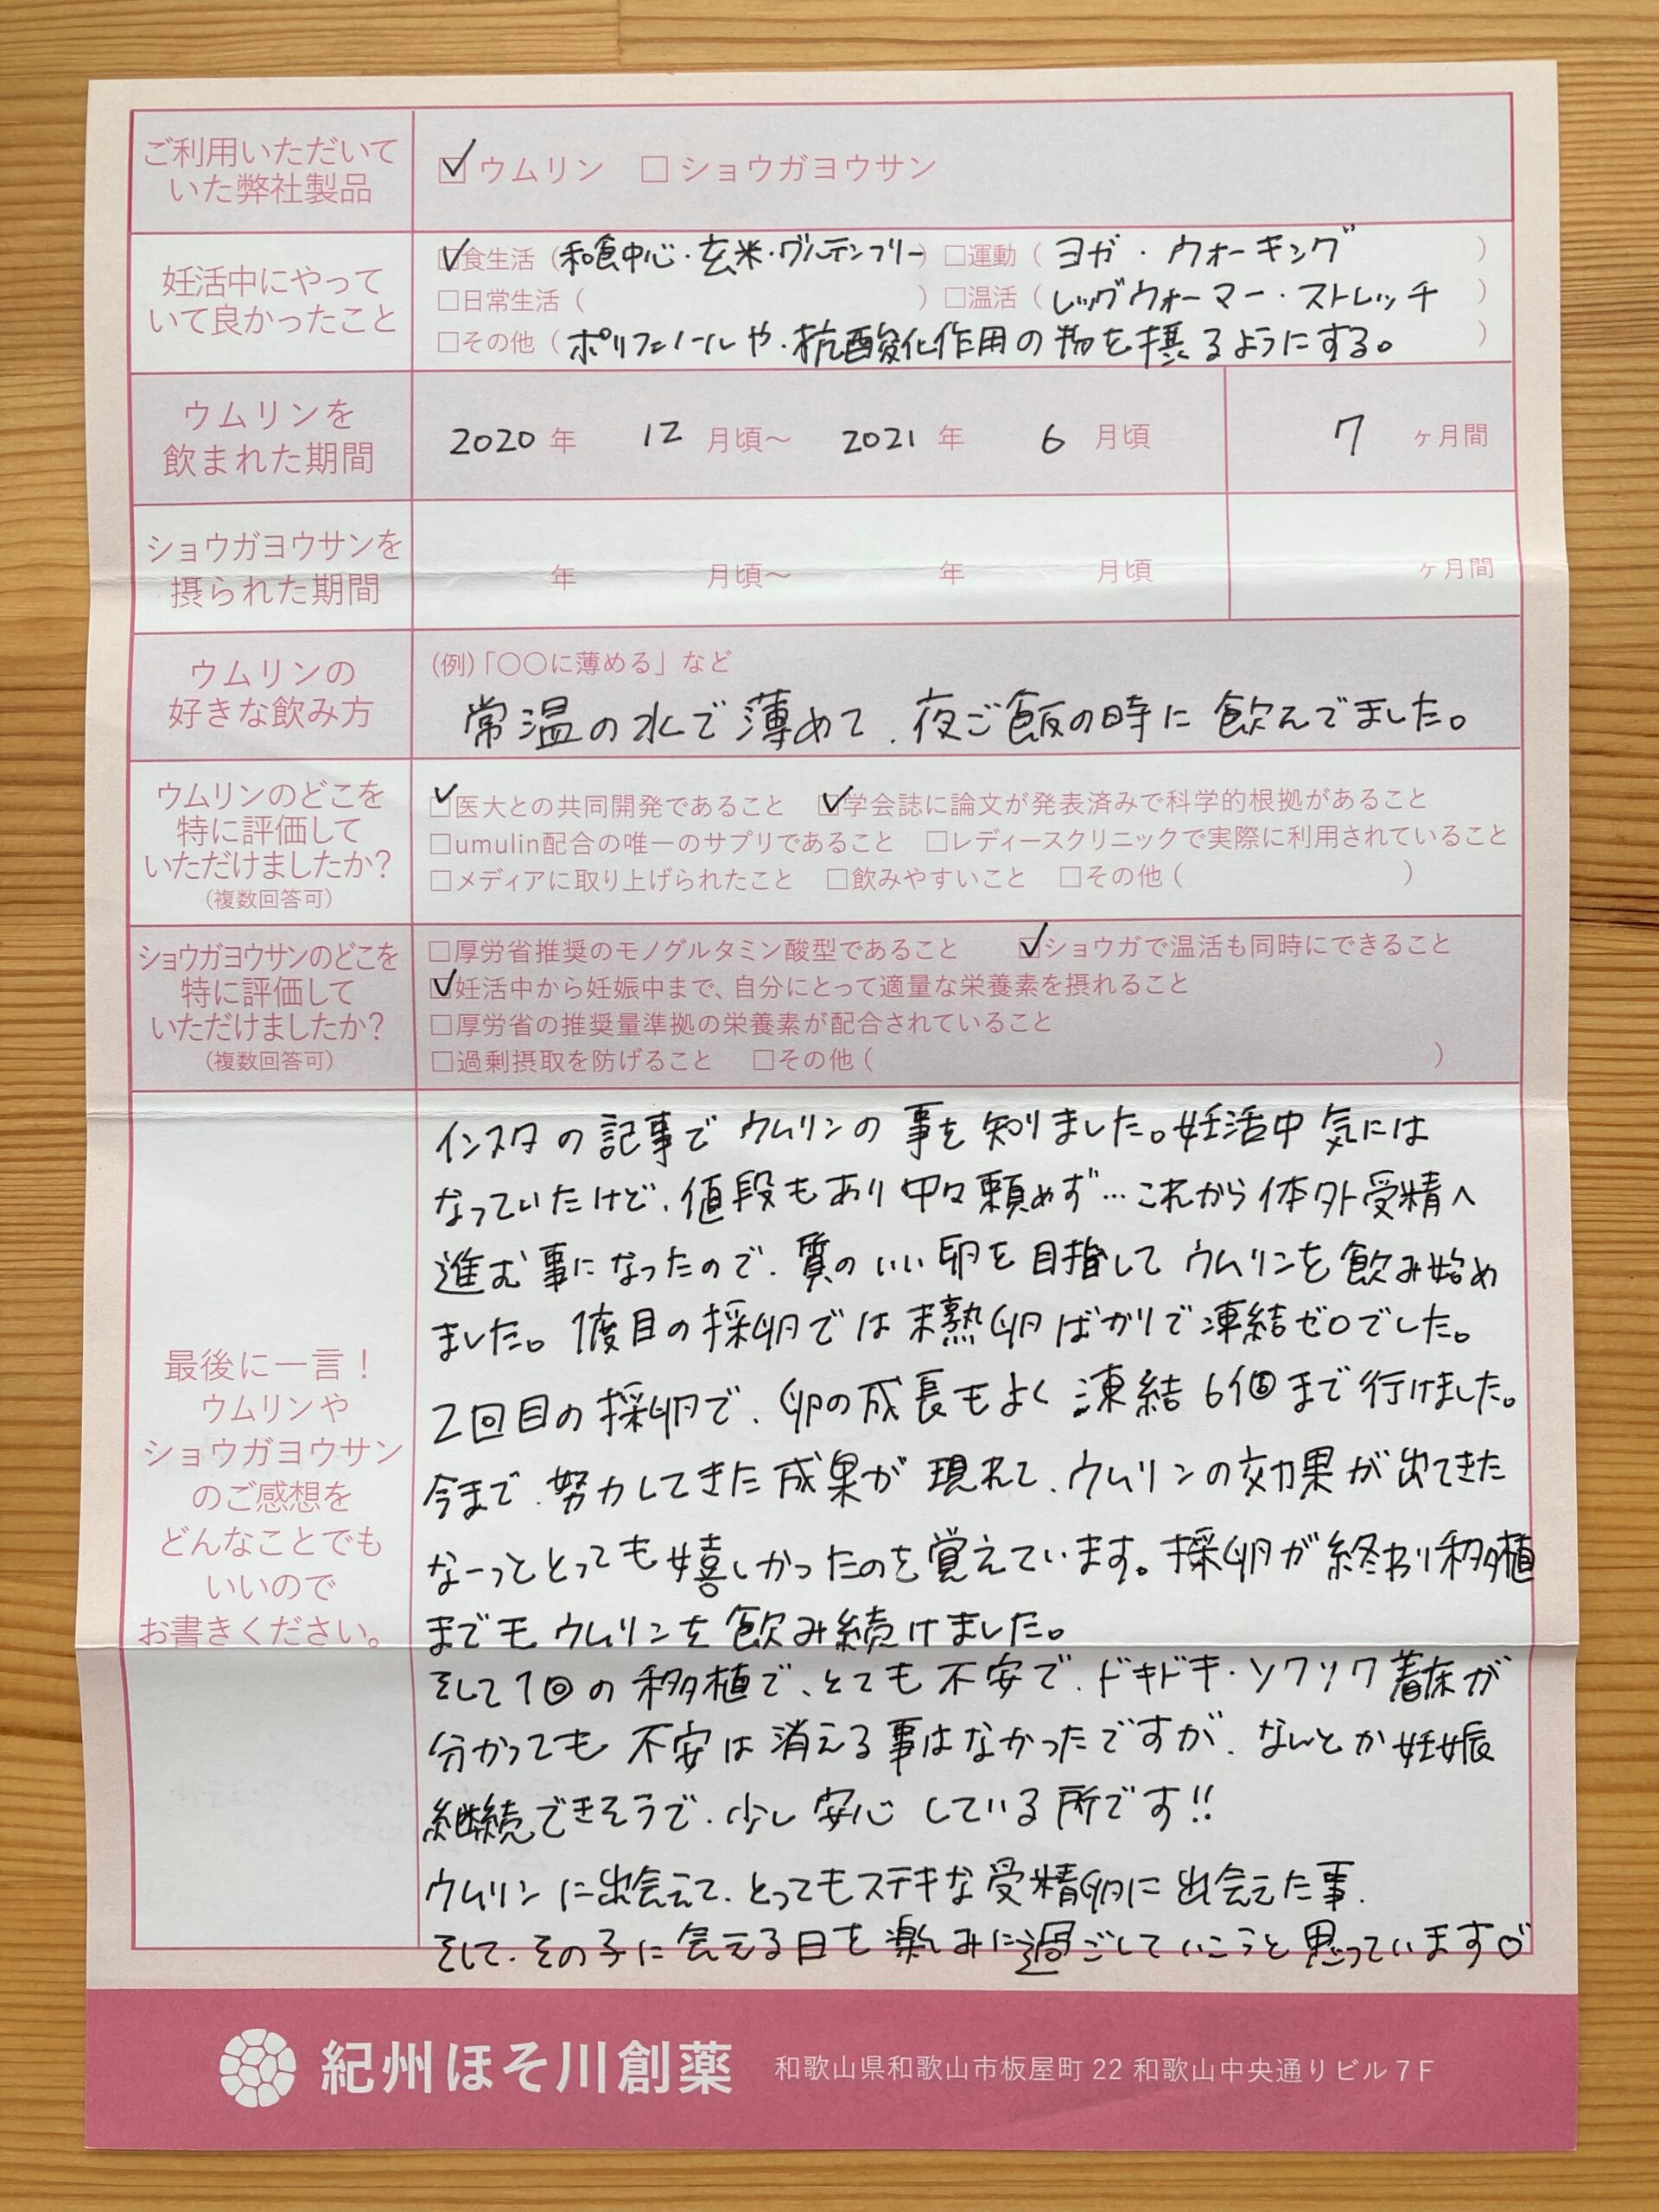 ご利用いただいて
いた弊社製品
☑ウムリン □ショウガヨウサン
妊活中にやって
いて良かったこと
☑食生活(和食中心・玄米・グルテンフリー) □運動(ヨガ・ウォーキング)
□日常生活( ) □温活(レッグウォーマー・ストレッチ)
□その他(ポリフェノールや、抗酸化作用の物を摂るようにする。)
ウムリンを
飲まれた期間
2020年 12月頃〜 2021年 6月頃 7ヶ月間
ショウガヨウサンを
摂られた期間
年 月頃〜 年 月頃 ヶ月間
ウムリンの
好きな飲み方
(例)「〇〇に薄める」など
常温の水で薄めて、夜ご飯の時に飲んでました。
ウムリンのどこを
特に評価して
いただけましたか?
(複数回答可)
☑医大との共同開発であること ☑学会誌に論文が発表済みで科学的根拠があること
□umulin配合の唯一のサプリであること □レディースクリニックで実際に利用されていること
□メディアに取り上げられたこと □飲みやすいこと □その他( )
ショウガヨウサンのどこを
特に評価して
いただけましたか?
(複数回答可)
□厚労省推奨のモノグルタミン酸型であること ☑ショウガで温活も同時にできること
☑妊活中から妊娠中まで、自分にとって適量な栄養素を摂れること
□厚労省の推奨量準拠の栄養素が配合されていること
□過剰摂取を防げること □その他( )
最後に一言!
ウムリンや
ショウガヨウサン
のご感想を
どんなことでも
いいので
お書きください。
インスタの記事でウムリンの事を知りました。妊活中気には
なっていたけど、値段もあり中々頼めず…これから体外受精へ
進む事になったので、質のいい卵を目指してウムリンを飲み始め
ました。1度目の採卵では未熟卵ばかりで凍結ゼロでした。
2回目の採卵で、卵の成長もよく凍結6個まで行けました。
今まで、努力してきた成果が現れて、ウムリンの効果が出てきた
なーっととっても嬉しかったのを覚えています。採卵が終わり移植
までもウムリンを飲み続けました。
そして1回の移植で、とても不安で、ドキドキ・ソワソワ着床が
分かっても不安は消える事はなかったですが、なんとか妊娠
継続できそうで、少し安心している所です!!
ウムリンに出会えて、とってもステキな受精卵に出会えた事、
そして、その子に会える日を楽しみに過ごしていこうと思っています♡
紀州ほそ川創薬 和歌山県和歌山市板屋町22 和歌山中央通りビル7F